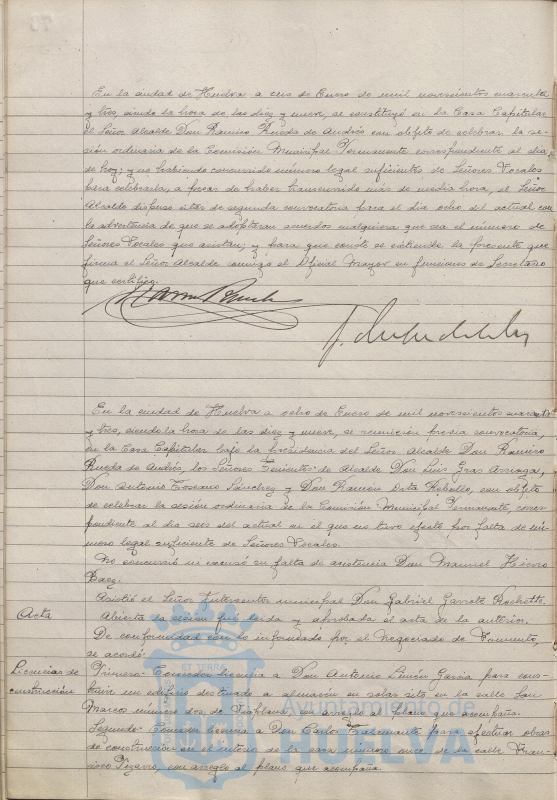 En la ciudad de Huelva a seis de Enero de mil novecientos cuarenta
y tres, siendo la hora de las diez y nueve, se constituyó en la Casa Capitular
el Señor Alcalde Don Ramiro Rueda de Andrés con objeto de celebrar la se-
sión ordinaria de la Comisión Municipal Permanente correspondiente al dia
de hoy; y no habiendo concurrido número legal suficientes de Señores Vocales
para celebrarla, a pesar de haber transcurrido más de media hora, el Señor
Alcalde dispuso citar de segunda convocatoria para el dia ocho del actual con
la advertencia de que se adoptaran acuerdos cualquiera que sea el número de
Señores Vocales que asistan; y para que conste se extiende la presente que
firma el Señor Alcalde conmigo el Oficial Mayor en funciones de Secretario
que certifico.
En la ciudad de Huelva a ocho de Enero de mil novecientos cuarenta
y tres, siendo la hora de las diez y nueve, se reunieron previa convocatoria,
en la Casa Capitular bajo la presidencia del Señor Alcalde Don Ramiro
Rueda de Andrés, los Señores Tenientes de Alcalde Don Luis Gras Arriaga,
Don Antonio Toscano Sánchez y Don Ramón Orta Rebollo, con objeto
de celebrar la sesión ordinaria de la Comisión Municipal Permanente, corres-
pondiente al dia seis del actual en el que no tuvo efecto por falta de nú-
mero legal suficiente de Señores Vocales.
No concurrió ni excusó su falta de asistencia Don Manuel
Baez.
Asistió el Señor Interventor municipal Don Gabriel Garrote
Acta
Abierta la sesión fué leida y aprobada el acta de la anterior.
De conformidad con lo informado por el Negociado de Fomento,
se acordó:
Licencias de
construcción
Primero: Conceder licencia a Don Antonio Limón García para cons-
truir un edificio destinado a almacén en solar sito en la calle San
Marcos número dos de con arreglo al plano que acompaña.
Segundo: Conceder licencia a Don Carlos para efectuar obras
de construcción en el interior de la casa número once de la calle Fran-
cisco Pizarro, con arreglo al plano que acompaña.
Ayuntamiento de
HUELVA